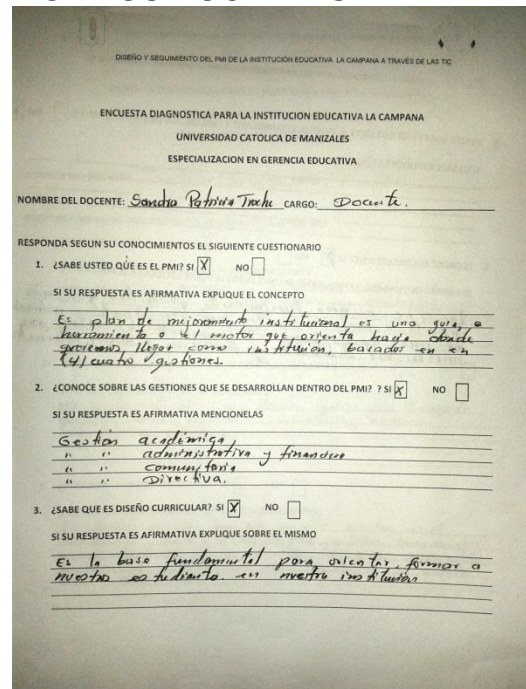 DISEÑO Y SEGUIMIENTO DEL PMI DE LA INSTITUCIÓN EDUCATIVA LA CAMPANA A TRAVÉS DE LAS TIC
ENCUESTA DIAGNOSTICA PARA LA INSTITUCION EDUCATIVA LA CAMPANA
UNIVERSIDAD CATOLICA DE MANIZALES
ESPECIALIZACION EN GERENCIA EDUCATIVA
NOMBRE DEL DOCENTE: Sandra Patricia CARGO: Docente.
RESPONDA SEGUN SU CONOCIMIENTOS EL SIGUIENTE CUESTIONARIO
1. ¿SABE USTED QÚE ES EL PMI? SI X NO
SI SU RESPUESTA ES AFIRMATIVA EXPLIQUE EL CONCEPTO
Es plan de mejoramiento institucional es una guía, o
herramienta o el motor que orienta hacia donde
queremos llegar como institución, basados en en
(4) cuatro gestiones.
2. ¿CONOCE SOBRE LAS GESTIONES QUE SE DESARROLLAN DENTRO DEL PMI? ? SI X NO
SI SU RESPUESTA ES AFIRMATIVA MENCIONELAS
Gestion académica
" " administrativa y financiera
" " comunitaria
" " Directiva.
3. ¿SABE QUE ES DISEÑO CURRICULAR? SI X NO
SI SU RESPUESTA ES AFIRMATIVA EXPLIQUE SOBRE EL MISMO
Es la base fundamental para orientar, formar a
nuestros estudiante en nuestra institución